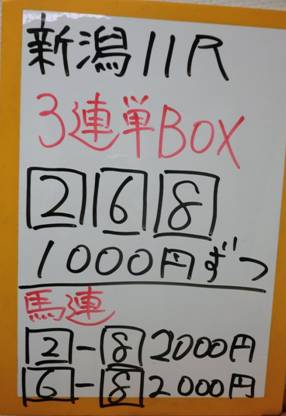 新潟11R
3連単BOX
2 6 8
1000円ずつ
馬連
2-8 2000円
6-8 2000円